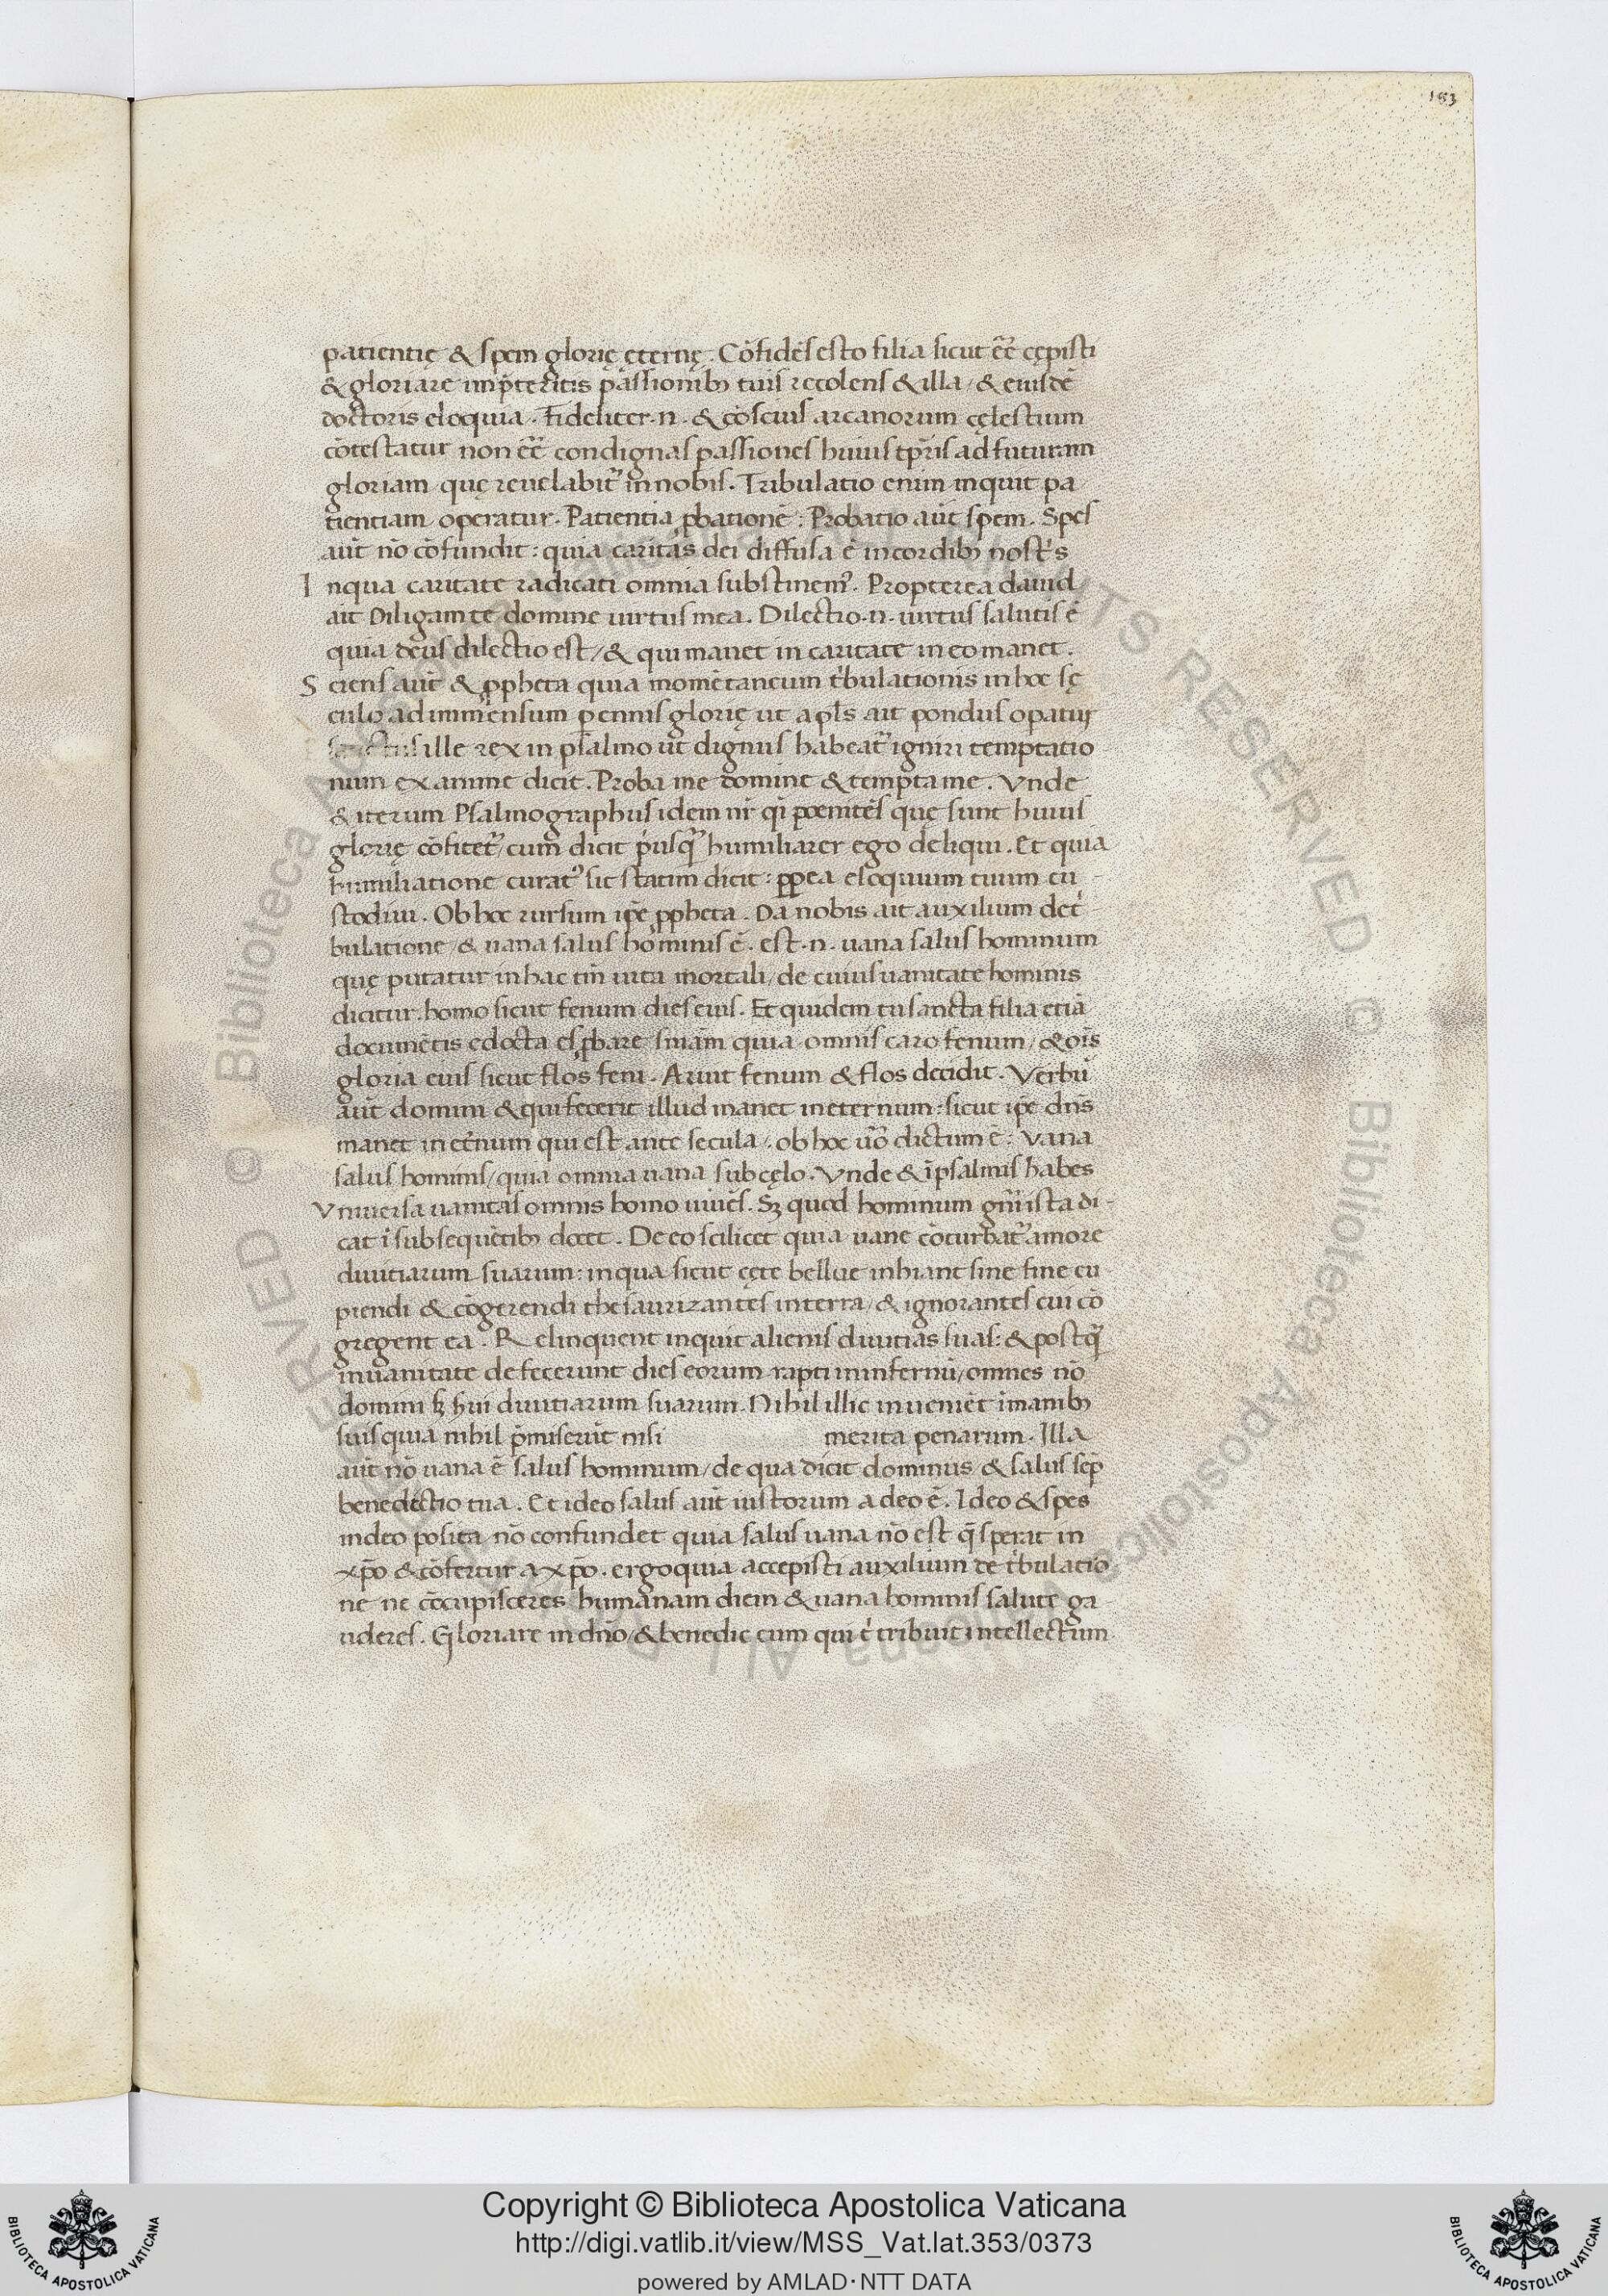 183
patientię & spem glorię ęternę. Cōfidēs esto filia sicut ēē cępisti
& gloriare in p̄teritis passionib; tuis recolens & illa / & eiusdē
doctoris eloquia. Fideliter .n. & cōscius arcanorum cęlestium
cōtestatur non ēē condignas passiones huius tp̄ris ad futuram
gloriam quę reuelabit̄ in nobis. Tribulatio enim inquit pa
tientiam operatur. Patientia ꝓbationē: Probatio aūt spem. Spes
aūt nō cōfundit: quia caritas dei diffusa ē in cordib; nostr̄s
In qua caritate radicati omnia substinem᾿. Propterea dauid
ait Diligam te domine uirtus mea. Dilectio .n. uirtus salutis ē
quia deus dilectio est / & qui manet in caritate in eo manet.
Sciens aūt & ꝓpheta quia momētaneum tr̄bulationis in hoc sę
culo ad immensum ꝑennis glorię ut apl̄s ait pondus opatur
sanctus ille rex in psalmo ut dignus habeat̄ igniri temptatio
num examine dicit. Proba me domine & tempta me. Vnde
& iterum Psalmographus idem nr̄ qi poenitēs quę sunt huius
glorię cōfitet̄ / cum dicit pusq̄ humiliarer ego deliqui. Et quia
humiliatione curat᾿ sic statim dicit: ꝓpea eloquium tuum cu
stodiui. Ob hoc rursum ip̄e ꝓpheta. Da nobis ait auxilium de t̄
bulatione / & uana salus hominis ē. est .n. uana salus hominum
quę putatur in hac tm̄ uita mortali / de cuius uanitate hominis
dicitur. homo sicut fenum dies eius. Et quidem tu sancta filia etiā
documētis edocta es ꝓbare sn̄iam quia omnis caro fenum / & ois̄
gloria eius sicut flos feni. Aruit fenum & flos decidit. Verbū
aūt domini & qui fecerit illud manet in eternum: sicut ip̄e dn̄s
manet in et̄num qui est ante secula. ob hoc uō dictum ē: Vana
salus hominis / quia omnia uana sub cęlo. Vnde & ī psalmis habes
Vniuersa uanitas omnis homo uiuēs. Sꝫ quod hominum gn̄i ista di-
cat ī subsequētib; docet. De eo scilicet quia uane cōturbat̄ amore
diuitiarum suarum: in qua sicut cęte bellue inhiant sine fine cu
piendi & cōgerendi thesaurizantes in terra / & ignorantes cui cō
gregent ea. Relinquent inquit alienis diuitias suas: & postq̄
in uanitate defecerunt dies eorum rapti in infernū / omnes nō
domini sꝫ s̄ui diuitiarum suarum. Nihil illic inueniēt ī manib;
suis quia nihil p̄miserūt nisi merita penarum. Illa
aūt nō uana ē salus hominum / de qua dicit dominus & salus sep̄
benedictio tua. Et ideo salus aūt iustorum a deo ē. Ideo & spes
in deo posita nō confundet quia salus uana nō est q̄ sperat in
xp̄o & cōfertur a xp̄o. ergo quia accepisti auxilium de tr̄bulatio
ne ne cōcupisceres humanam diem & uana hominis salute ga
uderes. Gloriare in dn̄o / & benedic eum qui t̄ tribuit intellectum
Copyright © Biblioteca Apostolica Vaticana
http://digi.vatlib.it/view/MSS_Vat.lat.353/0373
powered by AMLAD·NTT DATA
BIBLIOTECA APOSTOLICA VATICANA
BIBLIOTECA APOSTOLICA VATICANA